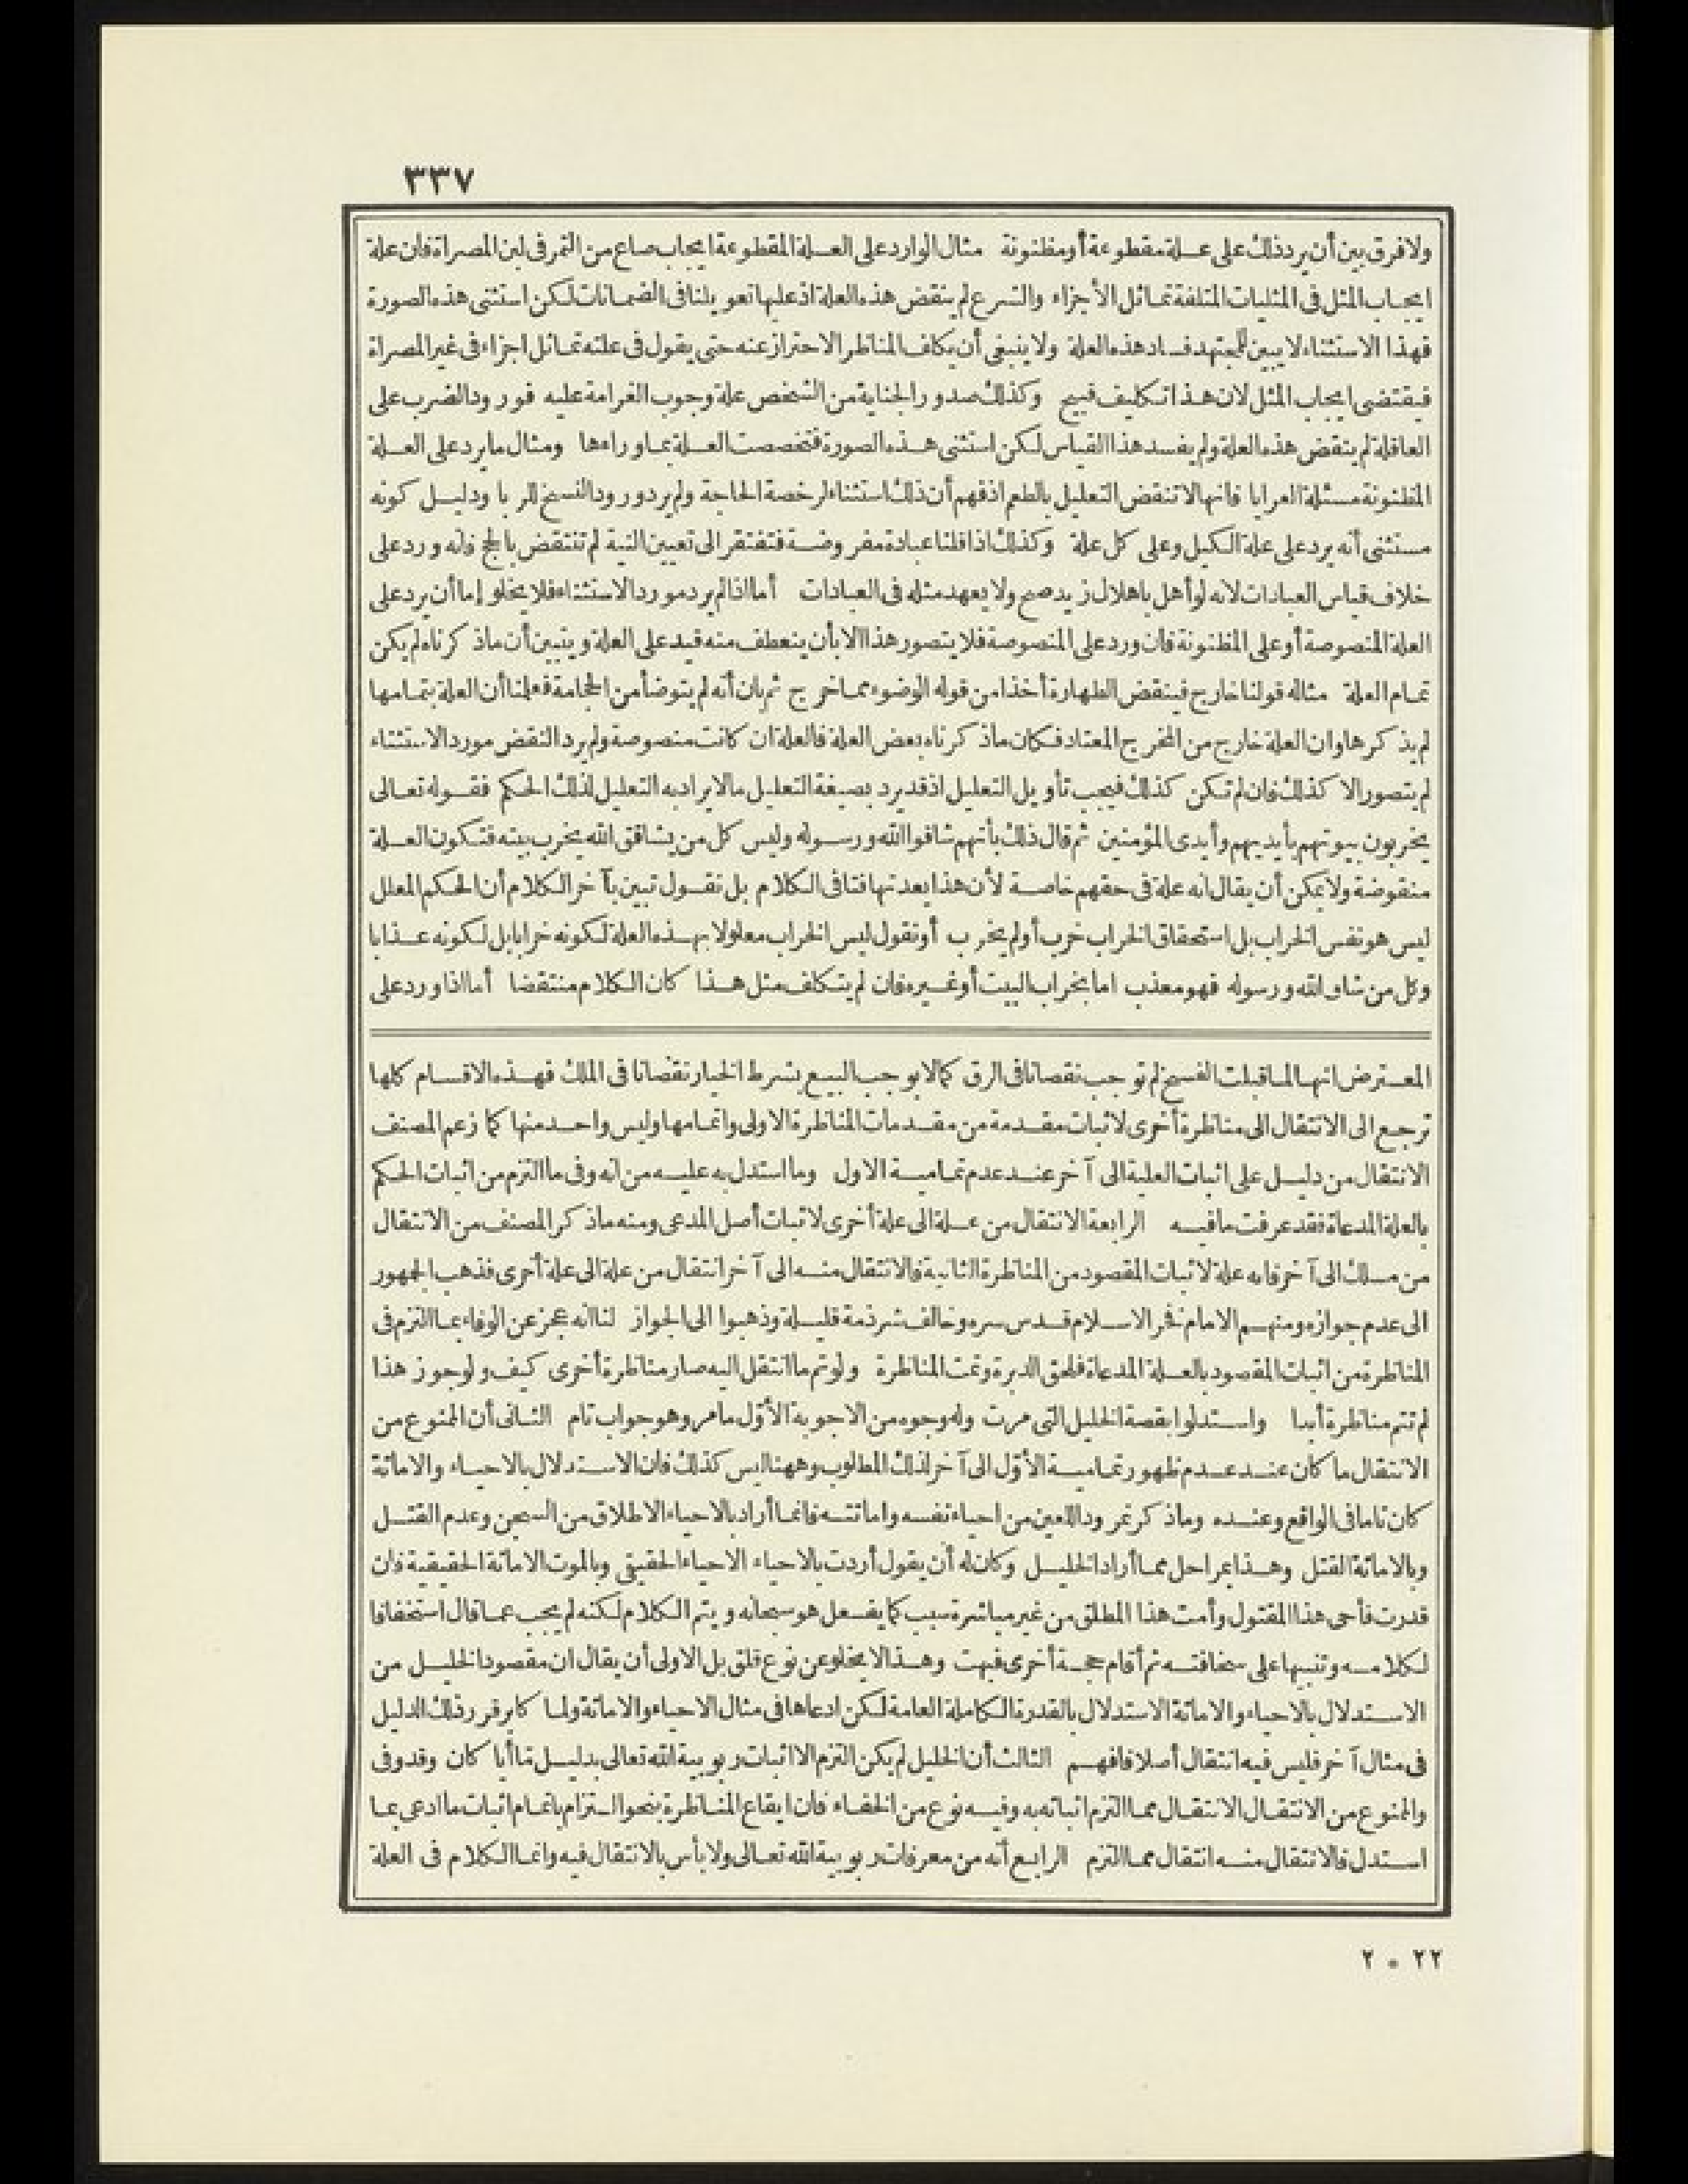 ٣٣٧
ولا فرق بين أن يرد ذلك على علة مقطوعة أو مظنونة مثال الوارد على العلة المقطوعة ايجاب صاع من التمر فى لبن المصراة فان علة
ايجاب المثل فى المثليات المتلفة تماثل الأجزاء والشرع لم ينقض هذه العلة اذ عليها تعويلنا فى الضمانات لكن استثنى هذه الصورة
فهذا الاستثناء لا يبين للمجتهد فساد هذه العلة ولا ينبغى أن يكلف المناظر الاحتراز عنه حتى يقول فى علته تماثل اجزاء فى غير المصراة
فيقتضى ايجاب المثل لان هذا تكليف قبيح وكذلك صدور الجناية من الشخص علة وجوب الغرامة عليه فورود الضرب على
العاقلة لم ينقض هذه العلة ولم يفسد هذا القياس لكن استثنى هذه الصورة فتخصصت العلة بما وراءها ومثال ما يرد على العلة
المظنونة مسئلة العرايا فانها لا تنقض التعليل بالطعم اذ فهم أن ذلك استثناء لرخصة الحاجة ولم يرد ورود النسخ للربا ودليل كونه
مستثنى أنه يرد على علة الكيل وعلى كل علة وكذلك اذا قلنا عبادة مفروضة فتفتقر الى تعيين النية لم تنتقض بالحج فانه ورد على
خلاف قياس العبادات لانه لو أهل باهلال زيد صح ولا يعهد مثله فى العبادات أما اذا لم يرد مورد الاستثناء فلا يخلو إما أن يرد على
العلة المنصوصة أو على المظنونة فان ورد على المنصوصة فلا يتصور هذا الا بأن ينعطف منه قيد على العلة ويتبين أن ماذكرناه لم يكن
تمام العلة مثاله قولنا خارج فينقض الطهارة أخذا من قوله الوضوء مما خرج ثم بان أنه لم يتوضأ من الحجامة فعلمنا أن العلة بتمامها
لم يذكرها وان العلة خارج من المخرج المعتاد فكان ماذكرناه بعض العلة فالعلة ان كانت منصوصة ولم يرد النقض مورد الاستثناء
لم يتصور الا كذلك فان لم تكن كذلك فيجب تأويل التعليل اذ قد يرد بصيغة التعليل مالا يراد به التعليل لذلك الحكم فقوله تعالى
يخربون بيوتهم بأيديهم وأيدى المؤمنين ثم قال ذلك بأنهم شاقوا الله ورسوله وليس كل من يشاقق الله يخرب بيته فتكون العلة
منقوضة ولا يمكن أن يقال انه علة فى حقهم خاصة لأن هذا يعد تهافتا فى الكلام بل نقول تبين بآخر الكلام أن الحكم المعلل
ليس هو نفس الخراب بل استحقاق الخراب خرب أو لم يخرب أو نقول ليس الخراب معلولا بهذه العلة لكونه خرابا بل لكونه عذابا
وكل من شاق الله ورسوله فهو معذب اما بخراب البيت أو غيره فان لم يتكلف مثل هذا كان الكلام منتقضا أما اذا ورد على
المعترض انها لما قبلت الفسخ لم توجب نقصانا فى الرق كما لا يوجب البيع بشرط الخيار نقصانا فى الملك فهذه الاقسام كلها
ترجع الى الانتقال الى مناظرة أخرى لاثبات مقدمة من مقدمات المناظرة الاولى واتمامها وليس واحد منها كما زعم المصنف
الانتقال من دليل على اثبات العلية الى آخر عند عدم تمامية الاول وما استدل به عليه من انه وفى ما التزم من اثبات الحكم
بالعلة المدعاة فقد عرفت مافيه الرابعة الانتقال من علة الى علة أخرى لاثبات أصل المدعى ومنه ماذكر المصنف من الانتقال
من مسلك الى آخر فانه علة لاثبات المقصود من المناظرة الثانية فالانتقال منه الى آخر انتقال من علة الى علة أخرى فذهب الجمهور
الى عدم جوازه ومنهم الامام فخر الاسلام قدس سره وخالف شرذمة قليلة وذهبوا الى الجواز لنا انه عجز عن الوفاء بما التزم فى
المناظرة من اثبات المقصود بالعلة المدعاة فلحق الدبرة وتمت المناظرة ولو تم ما انتقل اليه صار مناظرة أخرى كيف ولو جوز هذا
لم تتم مناظرة أبدا واستدلوا بقصة الخليل التى مرت وله وجوه من الاجوبة الأول ما مر وهو جواب تام الثانى أن الممنوع من
الانتقال ما كان عند عدم ظهور تمامية الأول الى آخر لذلك المطلوب وههنا ليس كذلك فان الاستدلال بالاحياء والاماتة
كان تاما فى الواقع وعنده وماذكر نمرود اللعين من احياء نفسه واماتته فانما أراد بالاحياء الاطلاق من السجن وعدم القتل
وبالاماتة القتل وهذا بمراحل مما أراد الخليل وكان له أن يقول أردت بالاحياء الاحياء الحقيقى وبالموت الاماتة الحقيقية فان
قدرت فأحى هذا المقتول وأمت هذا المطلق من غير مباشرة سبب كما يفعل هو سبحانه ويتم الكلام لكنه لم يجب عما قال استخفافا
لكلامه وتنبيها على سخافته ثم أقام حجة أخرى فبهت وهذا لا يخلو عن نوع قلق بل الاولى أن يقال ان مقصود الخليل من
الاستدلال بالاحياء والاماتة الاستدلال بالقدرة الكاملة العامة لكن ادعاها فى مثال الاحياء والاماتة ولما كابر قرر ذلك الدليل
فى مثال آخر فليس فيه انتقال أصلا فافهم الثالث أن الخليل لم يكن التزم الا اثبات ربوبية الله تعالى بدليل ما أيا كان وقد وفى
والممنوع من الانتقال الانتقال مما التزم اثباته به وفيه نوع من الخفاء فان ايقاع المناظرة بنحو التزام باتمام اثبات ما ادعى بما
استدل فالانتقال منه انتقال مما التزم الرابع أنه من معرفات ربوبية الله تعالى ولا بأس بالانتقال فيه وانما الكلام فى العلة
٢٢ * ٢